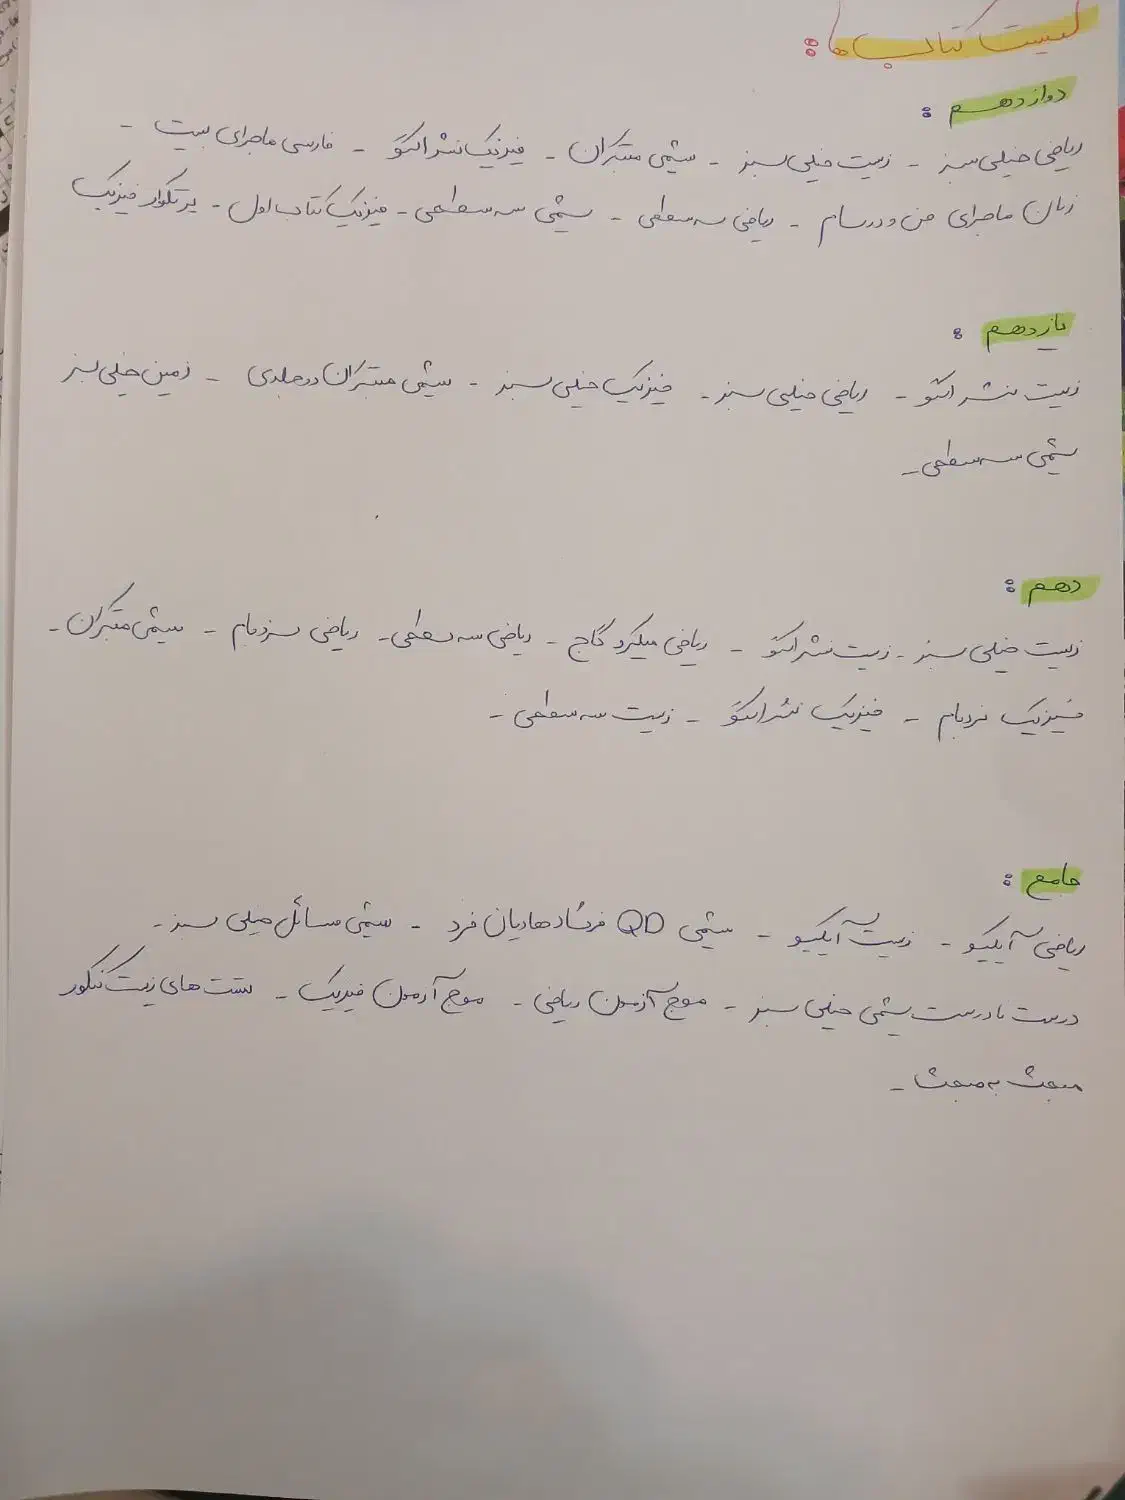 لیست کتاب ها:
دوازدهم:
ریاضی خیلی سبز - زیست خیلی سبز - شیمی مبتکران - فیزیک نشر الگو - فارسی ماجرای بیست -
زبان ماجرای من و درسام - ریاضی سه سطحی - شیمی سه سطحی - فیزیک کتاب اول - پر تکرار فیزیک
یازدهم:
زیست نشر الگو - ریاضی خیلی سبز - فیزیک خیلی سبز - شیمی مبتکران دو جلدی - زمین خیلی سبز
شیمی سه سطحی -
دهم:
زیست خیلی سبز - زیست نشر الگو - ریاضی میکرو گاج - ریاضی سه سطحی - ریاضی نردبام - شیمی مبتکران -
فیزیک نردبام - فیزیک نشر الگو - زیست سه سطحی -
جامع:
ریاضی آیکیو - زیست آیکیو - شیمی QD فرشاد هادیان فرد - شیمی مسائل خیلی سبز -
درست نادرست شیمی خیلی سبز - موج آزمون ریاضی - موج آزمون فیزیک - تست های زیست کنکور
مبحث به مبحث -